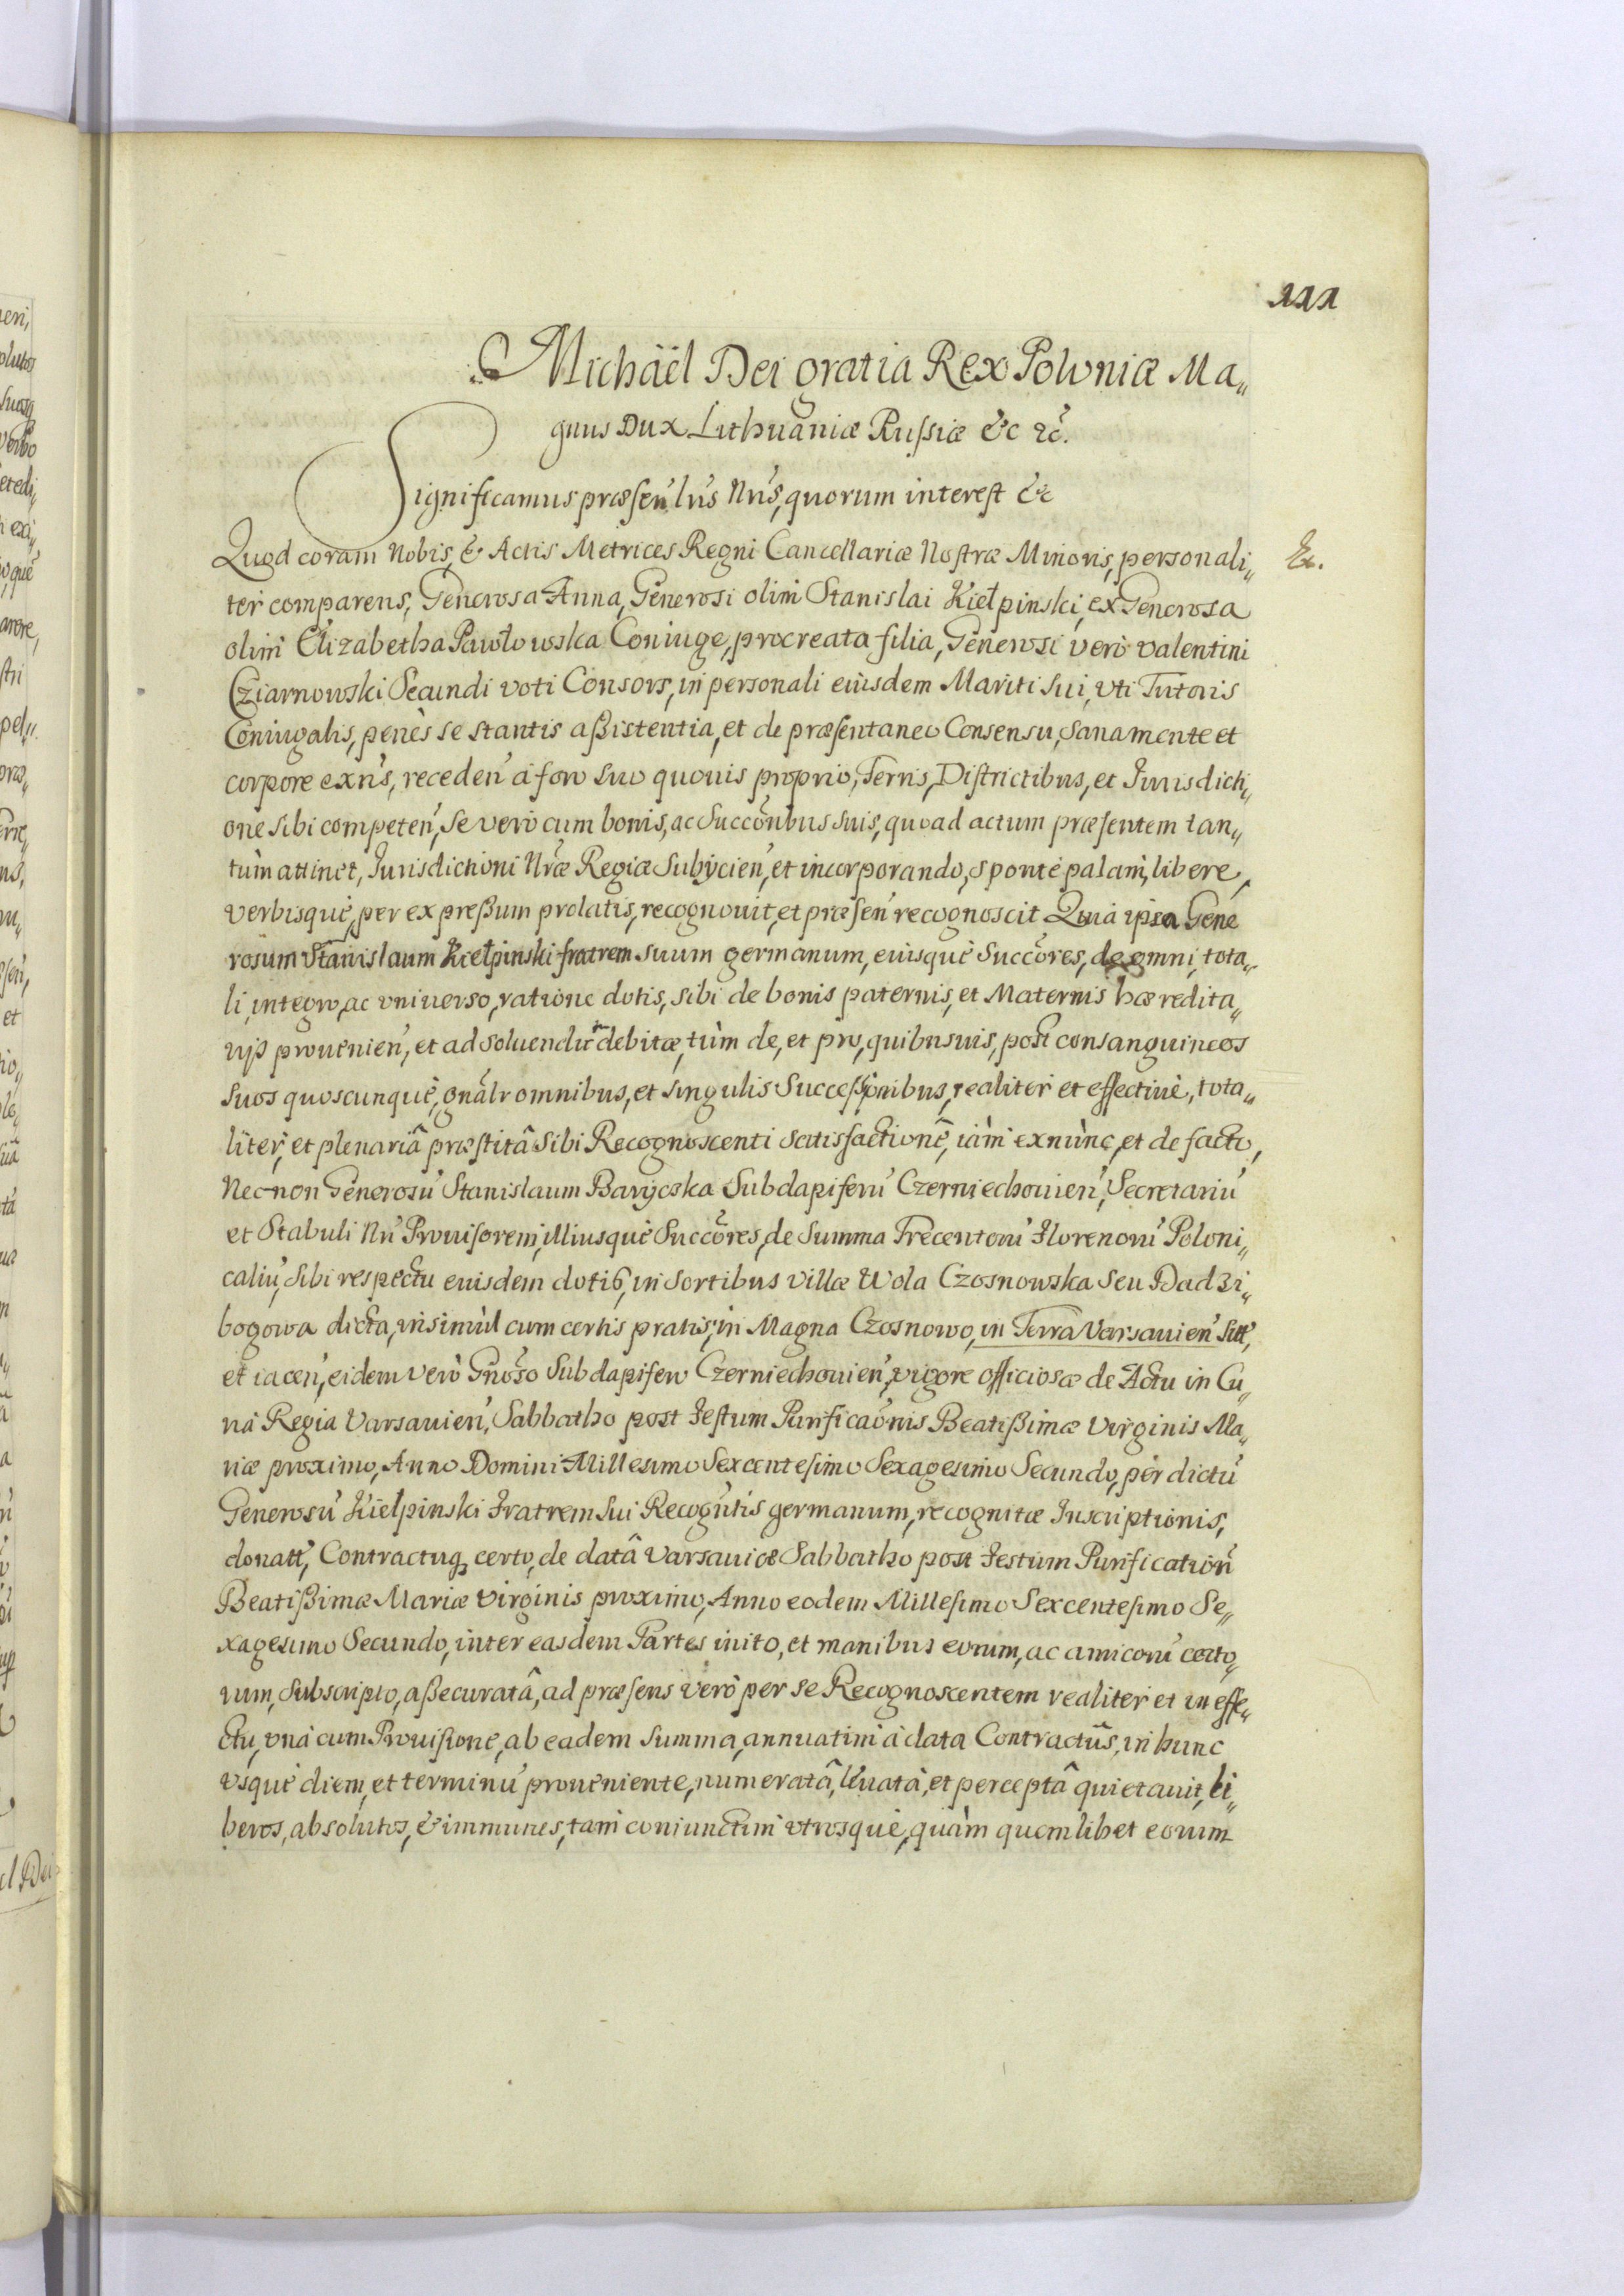 111
Michäel Dei gratia Rex Poloniæ Ma„
gnus Dux Lithuaniæ Russiæ &c &c.
Significamus præsen̄ lrīs Nrīs, quorum interest &c
Quod coram Nobis, & Actis Metrices Regni Cancellariæ Nostræ Minoris, personali„
Ex.
ter comparens, Generosa Anna, Generosi olim Stanislai Kiełpinski, ex Generosa
olim Elizabetha Pawłowska Coniuge, procreata filia, Generosi verò Valentini
Cziarnowski Secundi voti Consors, in personali eiusdem Mariti sui, vti Tutoris
Coniugalis, penès se stantis aßistentia, et de præsentaneo Consensu, sana mente et
corpore exn̄s, receden̄ à foro suo quouis proprio, Terris, Districtibus, et Jurisdicti„
one sibi competen̄, se verò cum bonis, ac Succōribus suis, quoad actum præsentem tan„
tùm attinet, Jurisdictioni Nrǣ Regiæ Subijcien̄, et incorporando, sponte palam, libere,
verbisquè, per expreßum prolatis, recognouit, et præsen̄ recognoscit Quià ipsa Gene
rosum Stanislaum Kiełpinski fratrem suum germanum, eiusquè Succōres, de omni, tota„
li, integro, ac vniuerso, ratione dotis, sibi de bonis paternis, et Maternis hæredita„
rijs prouenien̄, et ad soluendū debitæ, tùm de, et pro, quibusuis, post consanguineos
suos quoscunquè, gnālr omnibus, et singulis Succeßionibus, realiter et effectiuè, tota„
liter, et plenariâ præstitâ sibi Recognoscenti satisfactionē, iàm exnùnc, et de facto,
Nec-non Generosū Stanislaum Baryczka Subdapiferū Czerniechouien̄, Secretariū
et Stabuli Nrī Prouisorem, illiusquè Succōres, de Summa Trecentorū Florenorū Poloni„
caliū, sibi respectu euisdem dotis, in sortibus villæ Wola Czosnowska seu Dadzi„
bogowa dicta, insimùl cum certis pratis, in Magna Czosnowo, in Terra Varsauien̄ sitt̄,
et iacen̄, eidem verò Gnōso Subdapifero Czerniechouien̄, vigore officiosæ de Actu in Cu„
ria Regia Varsauien̄, Sabbatho post Festum Purificaōnis Beatißimæ Virginis Ma„
riæ proximo, Anno Domini Millesimo Sexcentesimo Sexagesimo Secundo, pèr dictū
Generosū Kiełpinski Fratrem sui Recogn̄tis germanum, recognitæ Inscriptionis,
donatt̄, Contractuq, certo, de datâ Varsauiæ Sabbatho post Festum Purification̄
Beatißimæ Mariæ Virginis proximo, Anno eodem Millesimo Sexcentesimo Se„
xagesimo Secundo, inter easdem Partes inito, et manibus eorum, ac amicorū certo„
rum, subscripto, aßecuratâ, ad præsens verò per se Recognoscentem realiter et in effe„
ctu, vnà cum Prouisione, ab eadem Summa, annuatim à data Contractūs, in hunc
vsquè diem, et terminū proueniente, numeratâ, leuatâ, et perceptâ quietauit, li„
beros, absolutos, & immunes, tam coniunctim vtrosquè, quàm quemlibet eorum